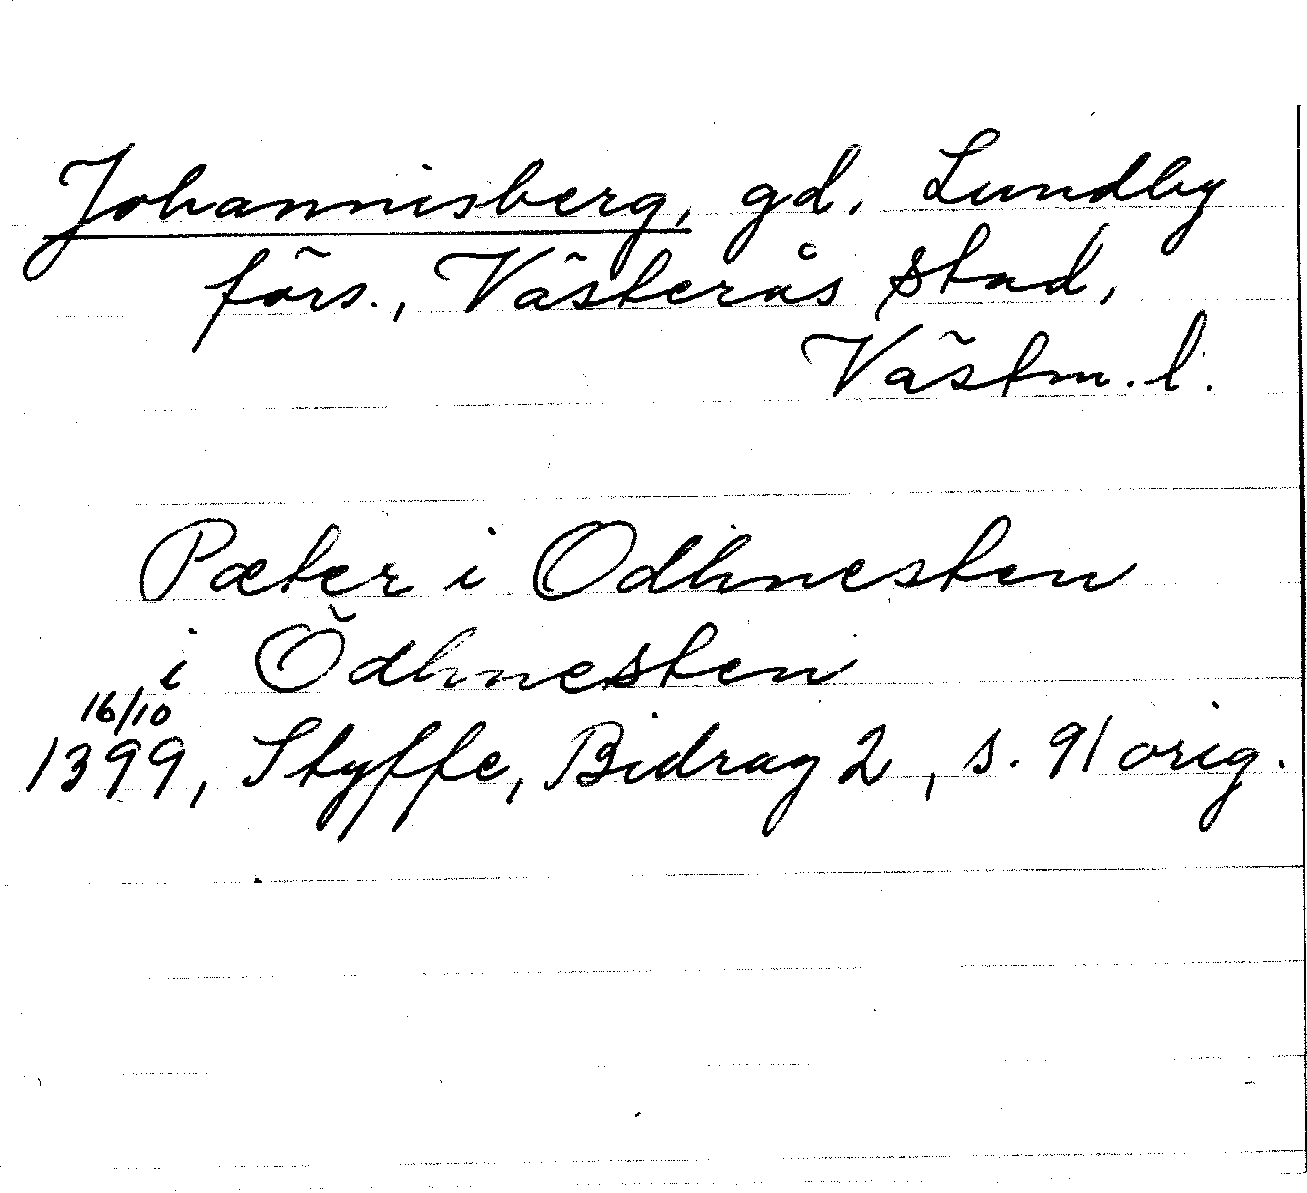 Johannisberg, gd. Lundby
förs., Västerås stad,
Västm. l.
Pæter i Odhnesten
i Ödhnesten
16/10
1399, Styffe, Bidrag 2, s. 91 orig.